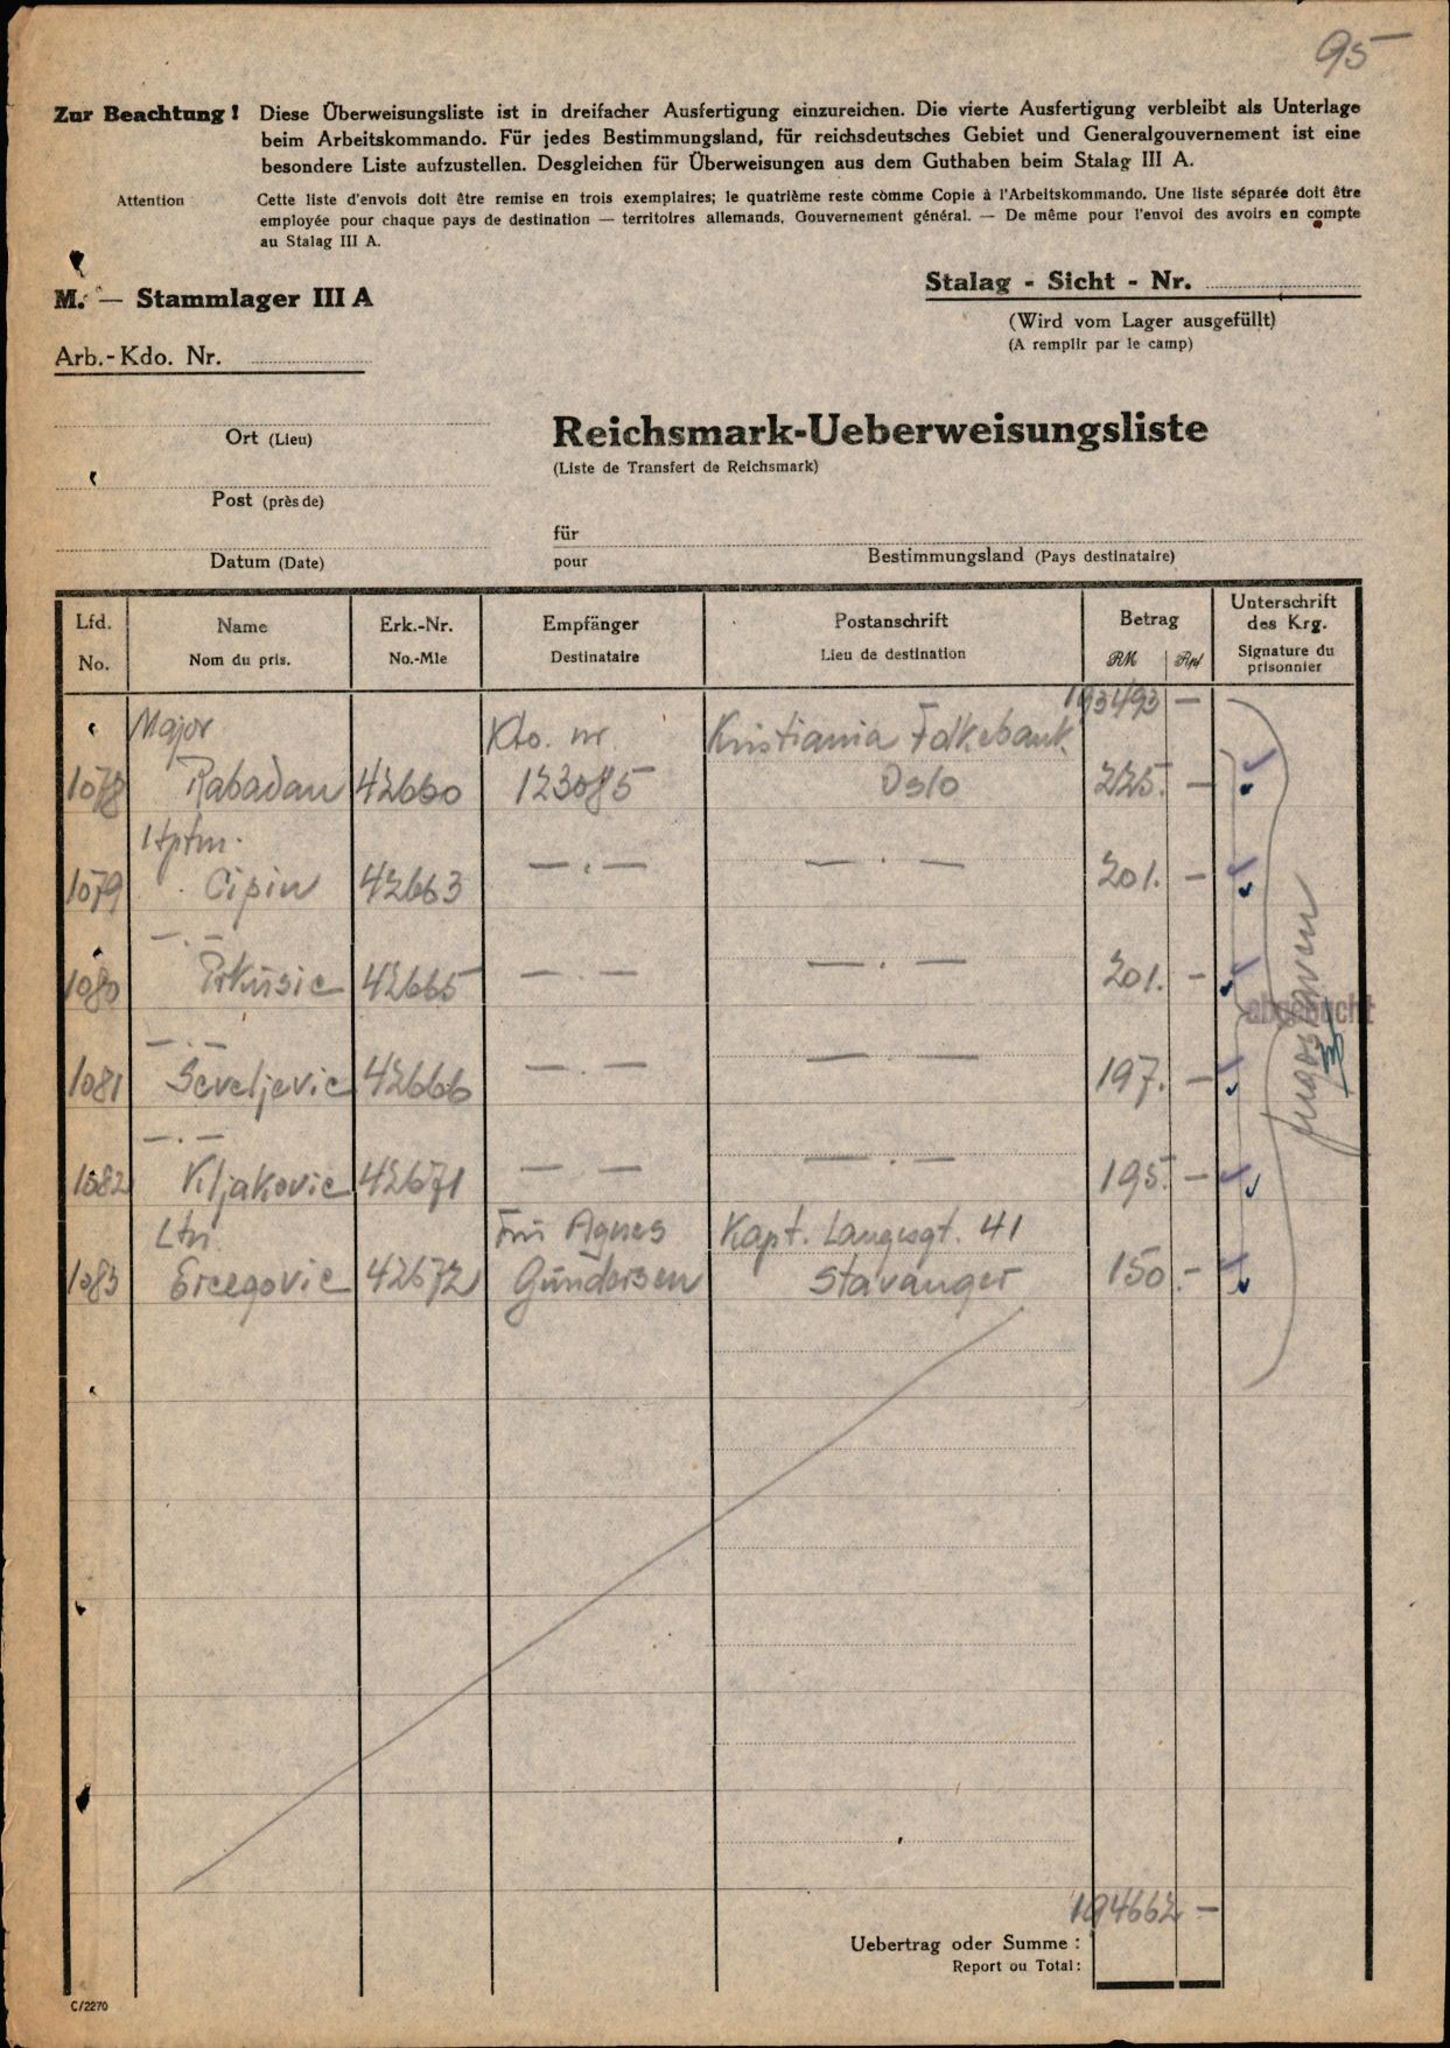 95
Zur Beachtung! Diese Überweisungsliste ist in dreifacher Ausfertigung einzureichen. Die vierte Ausfertigung verbleibt als Unterlage
beim Arbeitskommando. Für jedes Bestimmungsland, für reichsdeutsches Gebiet und Generalgouvernement ist eine
besondere Liste aufzustellen. Desgleichen für Überweisungen aus dem Guthaben beim Stalag III A.
Attention Cette liste d'envois doit être remise en trois exemplaires; le quatrième reste comme Copie à l'Arbeitskommando. Une liste séparée doit être
employée pour chaque pays de destination — territoires allemands, Gouvernement général. — De même pour l'envoi des avoirs en compte
au Stalag III A.
M. — Stammlager III A
Stalag - Sicht - Nr.
(Wird vom Lager ausgefüllt)
(A remplir par le camp)
Arb.-Kdo. Nr.
Ort (Lieu)
Reichsmark-Ueberweisungsliste
(Liste de Transfert de Reichsmark)
Post (près de)
für
Datum (Date)
pour
Bestimmungsland (Pays destinataire)
Lfd. Name Erk.-Nr. Empfänger Postanschrift Betrag Unterschrift des Krg.
No. Nom du pris. No.-Mle Destinataire Lieu de destination RM Rpf Signature du prisonnier
193493 —
Major Kto. nr. Kristiania Folkebank.
1078 Rabadan 42660 123085 Oslo 225. —
Hptm.
1079 Cipin 42663 — . — — . — 201. —
— . —
1080 Prkusic 42665 — . — — . — 201. —
— . —
1081 Seveljevic 42666 — . — — . — 197. —
— . —
1082 Kljakovic 42671 — . — — . — 195. —
Ltn. Fru Agnes Kapt. Langesgt. 41
1083 Ercegovic 42672 Gundersen Stavanger 150. —
abgebucht
Jugoslaven
194662 —
Uebertrag oder Summe :
Report ou Total:
C/2270